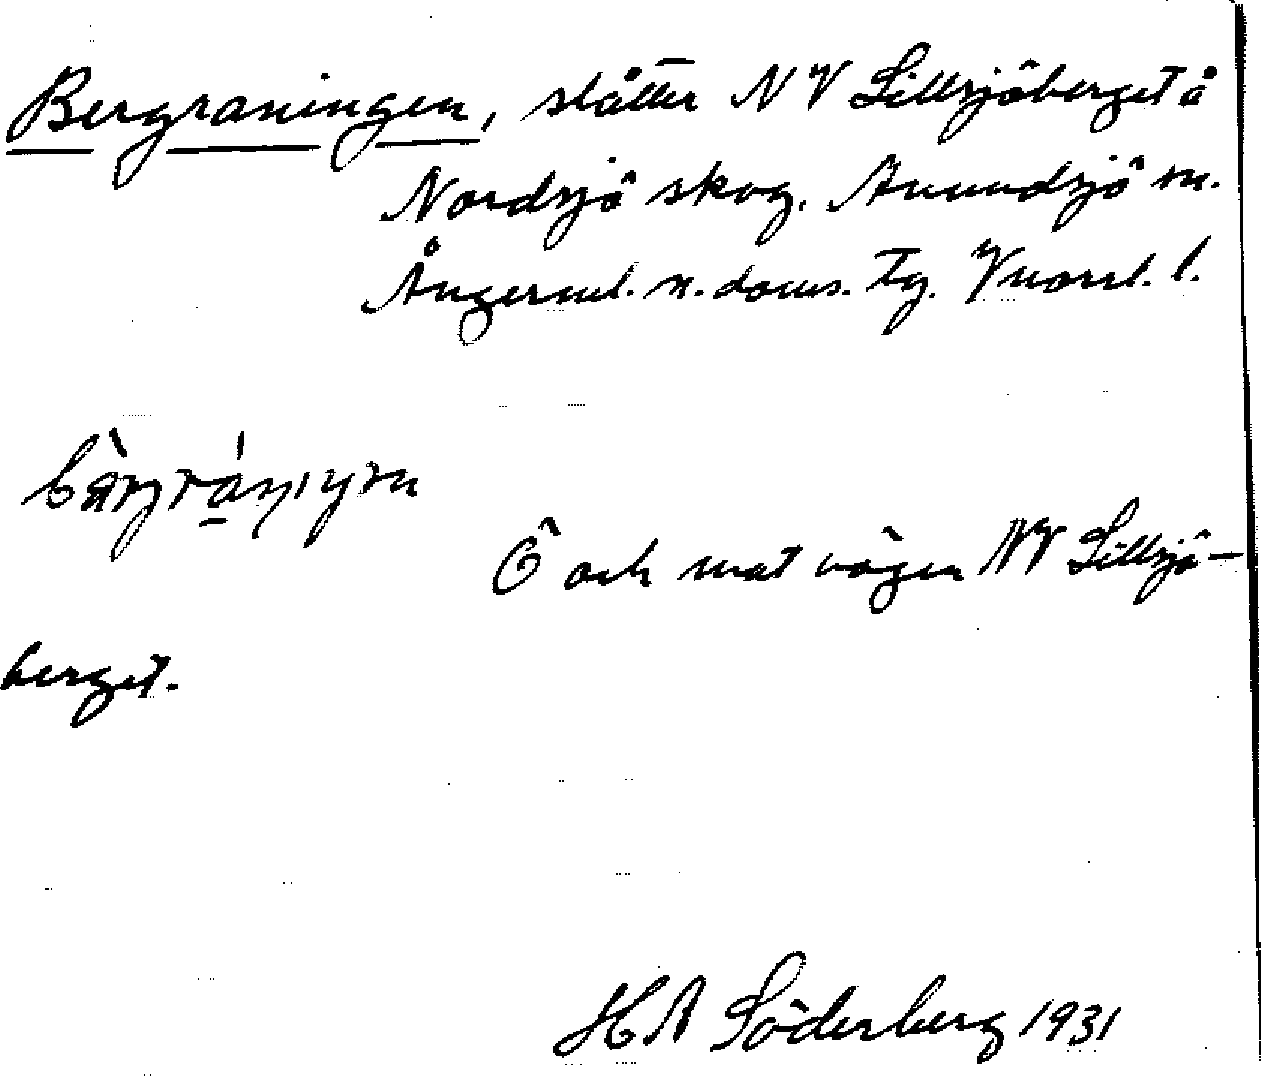 Bergraningen, slåtter NV Lillsjöberget å
Nordsjö skog. Anundsjö sn.
Ångerml. n. doms. tg. Vnorrl. l.
Ö och mot vägen NV Lillsjö-
berget.
H A Söderberg 1931